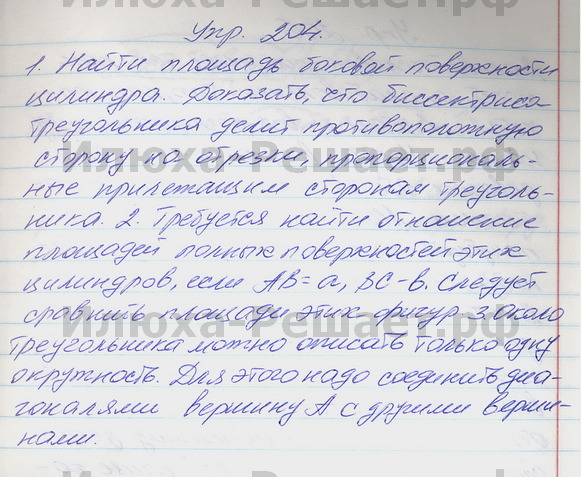 Илюха-Решает.рф
Упр. 204.
1. Найти площадь боковой поверхности
цилиндра. Доказать, что биссектриса
треугольника делит противоположную
сторону на отрезки, пропорциональ-
Илюха-Решает.рф
ные прилежащим сторонам треуголь-
ника. 2. Требуется найти отношение
площадей полных поверхностей этих
цилиндров, если AB = a, BC - b. Следует
сравнить площади этих фигур. 3. Около
Илюха-Решает.рф
треугольника можно описать только одну
окружность. Для этого надо соединить диа-
гоналями вершину А с другими верши-
нами.
Илюха-Решает.рф